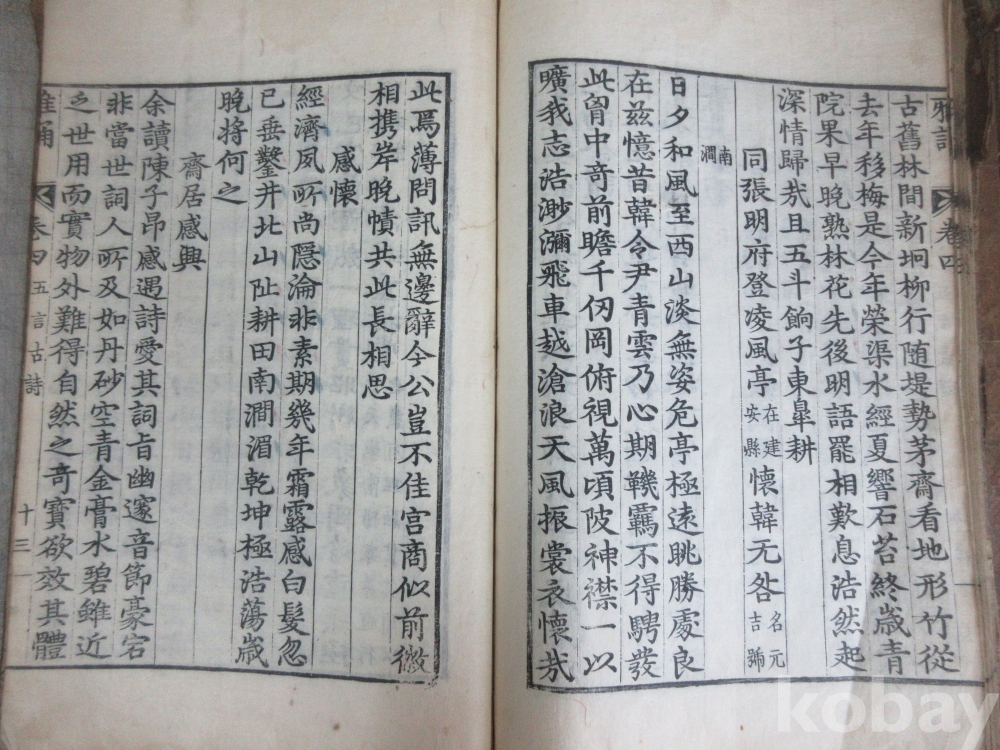 雅誦
卷四
古舊林間新坰柳行随堤勢茅齋看地形竹從
去年移梅是今年榮渠水經夏響石苔終歲青
院果早晚熟林花先後明語罷相歎息浩然起
深情歸㢤且五斗餉子東臯耕
同張明府登凌風亭在建安縣懷韓无咎名元吉號
南澗
日夕和風至西山淡無姿危亭極遠眺勝處良
在兹憶昔韓令尹青雲乃心期鞿羈不得騁發
此胷中竒前瞻千仞岡俯視萬頃陂神襟一以
曠我志浩渺瀰飛車越滄浪天風振裳衣懷㢤
此焉薄問訊無邊辭今公豈不佳宫商似前徽
相携岸晚幘共此長相思
感懷
經濟夙所尚隠淪非素期幾年霜露感白髮忽
已垂鑿井北山阯耕田南澗湄乾坤極浩蕩歲
晚將何之
齋居感興
余讀陳子昂感遇詩愛其詞旨幽邃音節豪宕
非當世詞人所及如丹砂空青金膏水碧雖近
乏世用而實物外難得自然之奇寶欲效其體
雅誦
卷四
五言古詩
十三
kobay